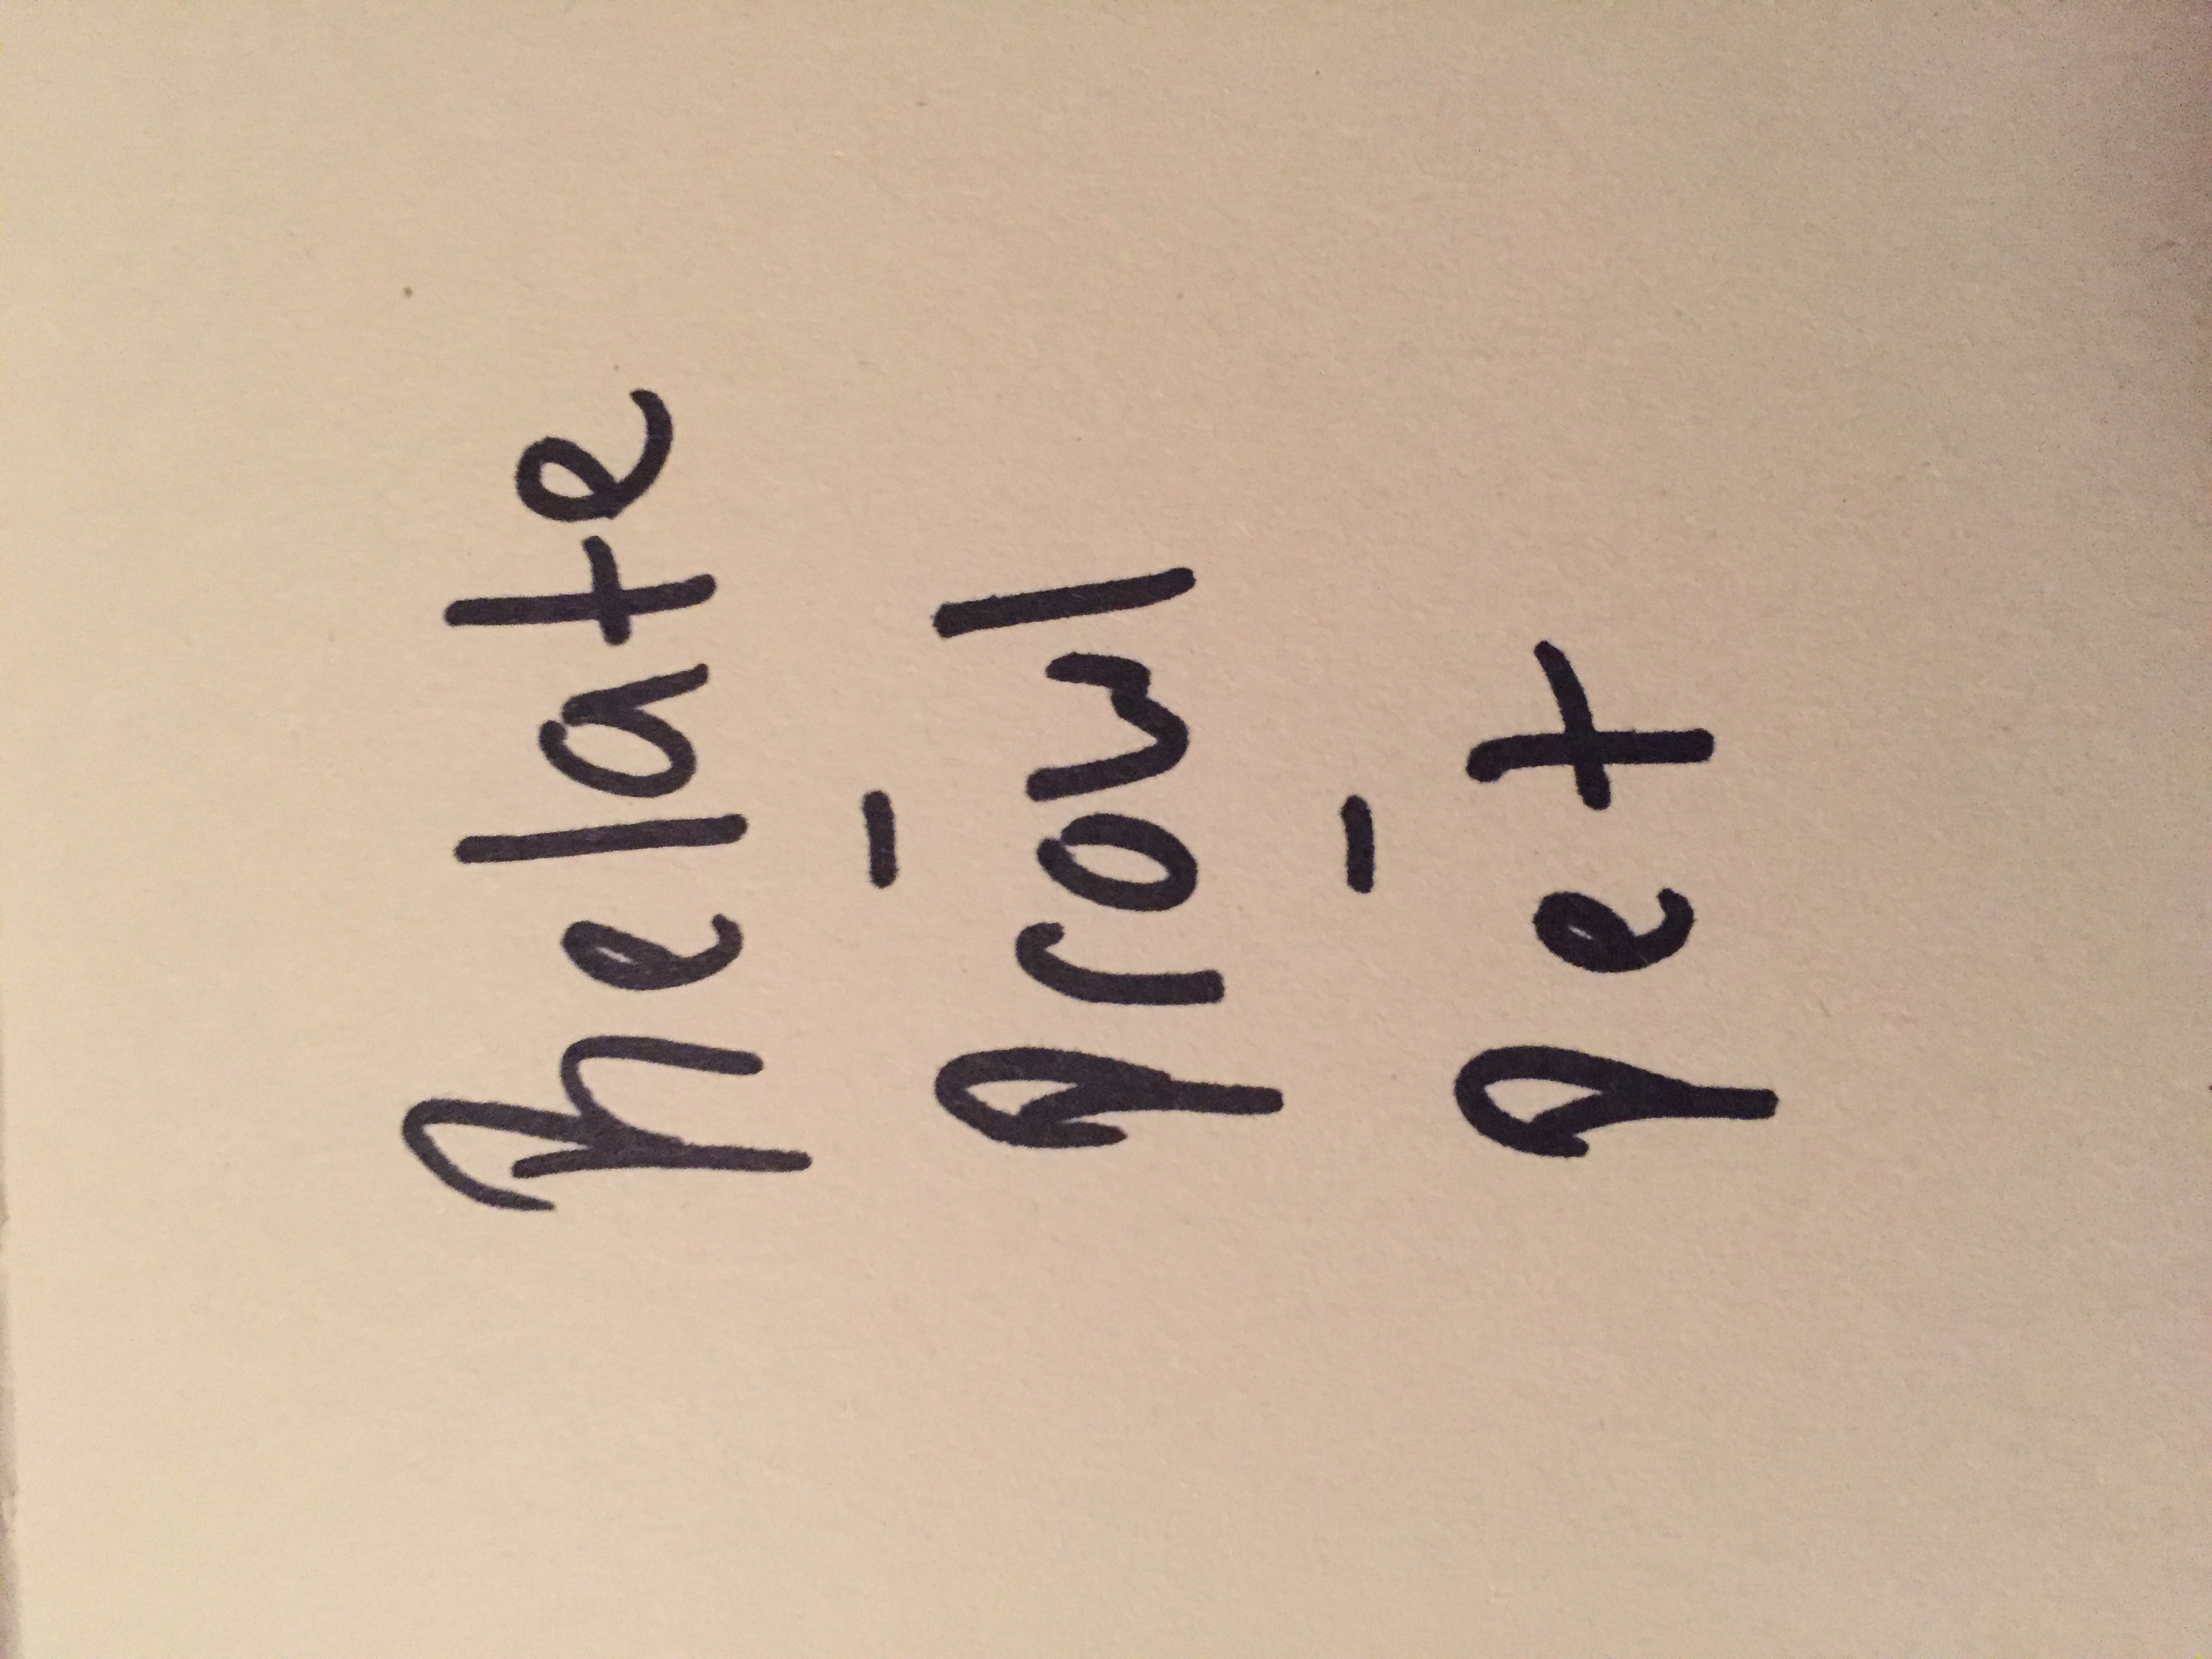 Relate
-
Prowl
-
Pet